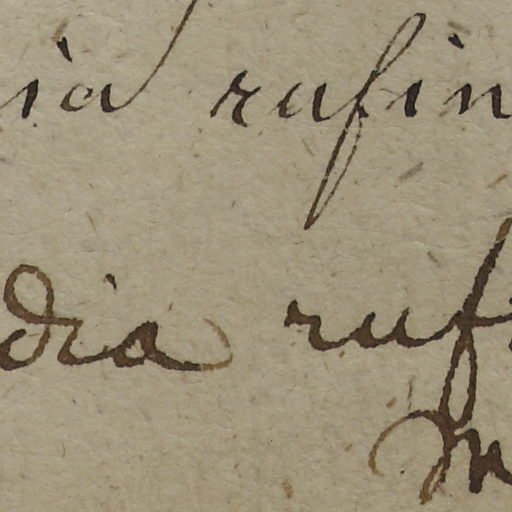 ia rufin
dia ruf
M